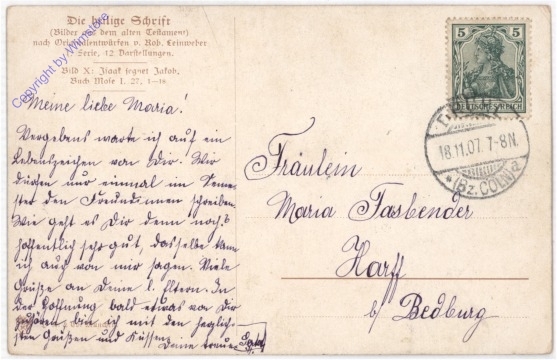 Die heilige Schrift
(Bilder aus dem alten Testament)
nach Originalentwürfen v. Rob. Leinweber
Serie, 12 Darstellungen.
Bild X: Isaak segnet Jakob,
Buch Mose I. 27, 1—
Meine liebe Maria!
Vergebens warte ich auf ein
Lebenszeichen von Dir. Wir
dürfen nur einmal im Semester
ster den Freundinnen schreiben.
Wie geht es Dir denn noch?
hoffentlich sehr gut, dasselbe kann
ich auch von mir sagen. Viele
Grüße an Deine l. Eltern. In
der Hoffnung bald etwas von Dir
zu hören bin ich mit den herzlichsten
sten Grüßen und Küssen
Deine treue
5
5
DEUTSCHES REICH
18.11.07. 7-8N.
*(Bz. CÖLN)
Fräulein
Maria Fasbender
Harff
b/ Bedburg